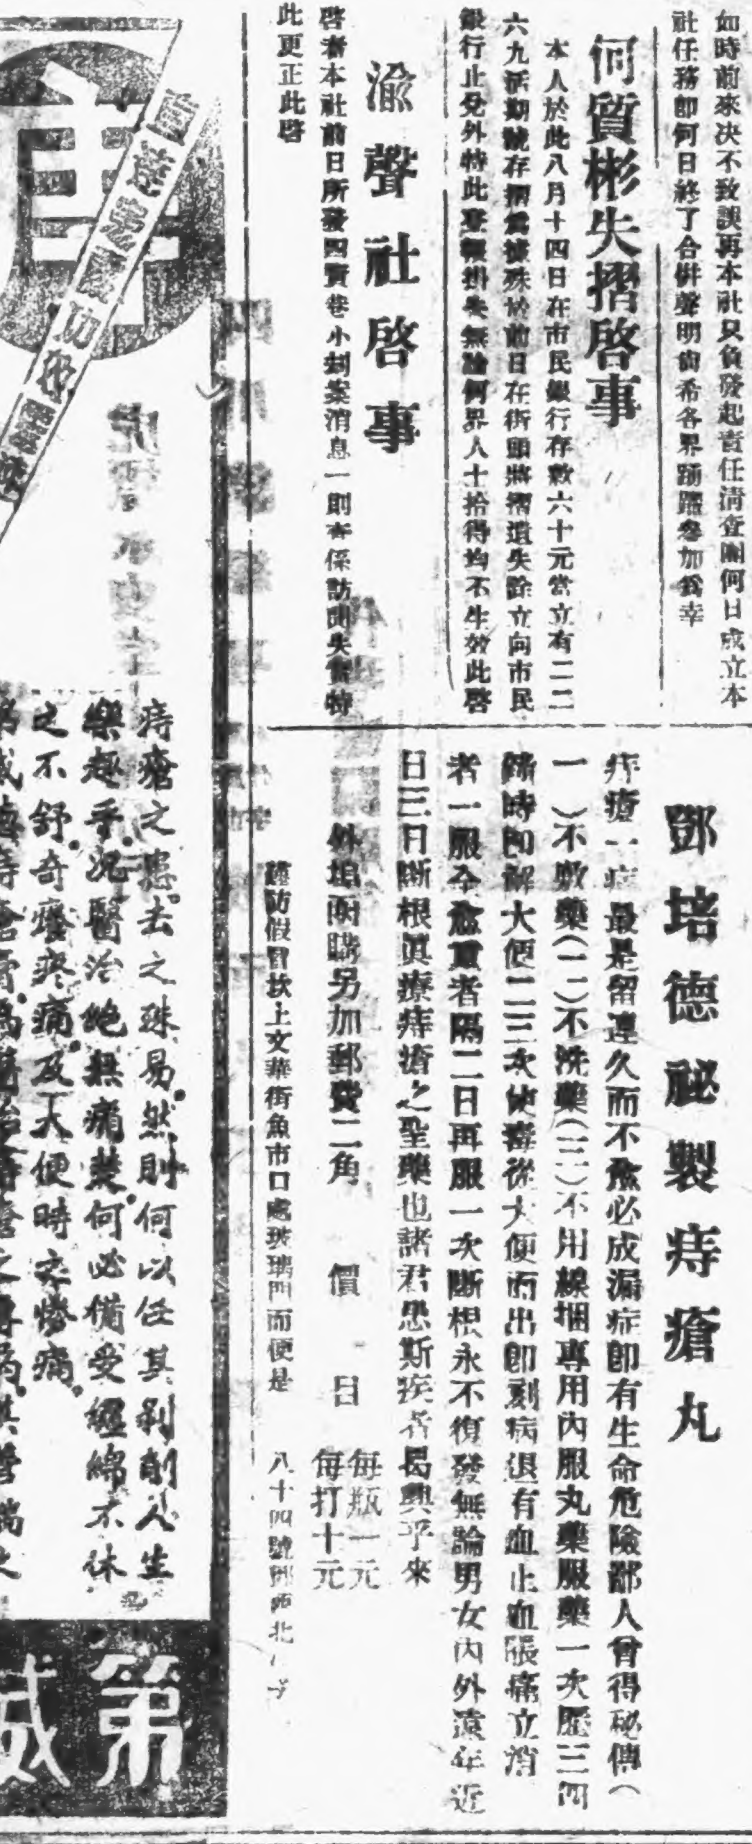 如時前來決不致誤再本社只負發起責任清查團何日成立本
社任務即何日終了合併聲明尚希各界踴躍參加爲幸
何質彬失摺啓事
本人於此八月十四日在市民銀行存款六十元當立有二二
六九活期號存摺爲據殊於前日在街頭將摺遺失除立向市民
銀行止兌外特此登報掛失無論何界人士拾得均不生效此啓
渝聲社啓事
啓者本社前日所發四賢巷小刦案消息一則查係訪聞失實特
此更正此啓
鄧培德祕製痔瘡丸
痔瘡一症最是留連久而不愈必成漏症即有生命危險鄙人曾得秘傳(
一)不敷藥(二)不洗藥(三)不用線捆專用內服丸藥服藥一次歷三四
鐘時即解大便二三次使毒從大便而出即刻病退有血止血脹痛立消
者一服全愈重者隔二日再服一次斷根永不復發無論男女內外遠年近
日三日斷根眞療痔瘡之聖藥也諸君患斯疾者曷興乎來
外埠函購另加郵費二角 價目 每瓶一元
每打十元
謹防假冒 上文華街魚市口處玻璃門面便是 八十四號
痔瘡之患去之殊易然則何以任其剝削人生
樂趣乎況醫治絶無痛楚何必備受纏綿不休
之不舒奇癢疼痛及大便時之慘痛
痔瘡膏爲醫治痔瘡之專藥其
第
威